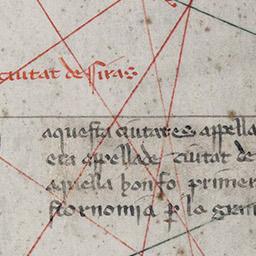 ciutat de siras
aquesta ciutat es appella
era apellada ciutat de
aquella hon fo primer
stornomia per la gran